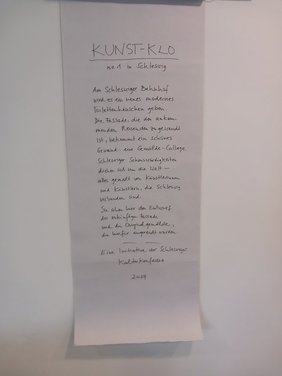 KUNST-KLO
no. 1 in Schleswig
Am Schleswiger Bahnhof
wird es ein neues modernes
Toilettenhäuschen geben.
Die Fassade, die den ankom-
menden Reisenden zugewandt
ist, bekommt ein schönes
Gewand: eine Gemälde-Collage.
Schleswiger Sehenswürdigkeiten
drehen sich um die Welt –
alles gemalt von Künstlerinnen
und Künstlern, die Schleswig
verbunden sind.
Sie sehen hier den Entwurf
der zukünftigen Fassade
und die Originalgemälde,
die hierfür angewandt werden.
Eine Initiative der Schleswiger
Kulturkonferenz
2019